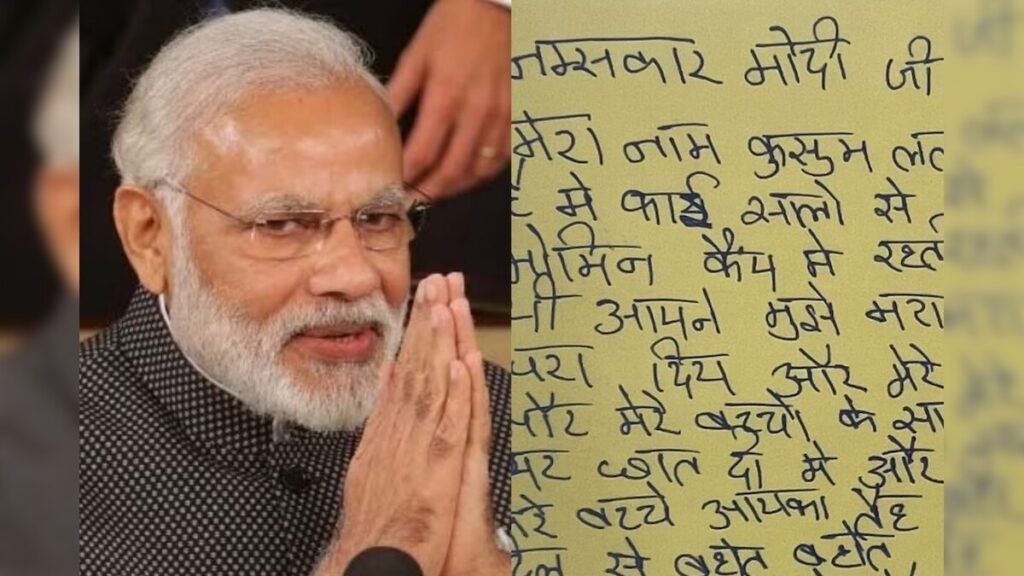 नम्सकार मोदी जी
मेरा नाम कुसुम लत
मे काई सालो से
कैप मे रहत
आपने मुझे मरा
दिय और मेरे
और मेरे बच्चो के सा
छात दी मे और
मेरे बच्चे आपका
दिल से बहोत बहोत